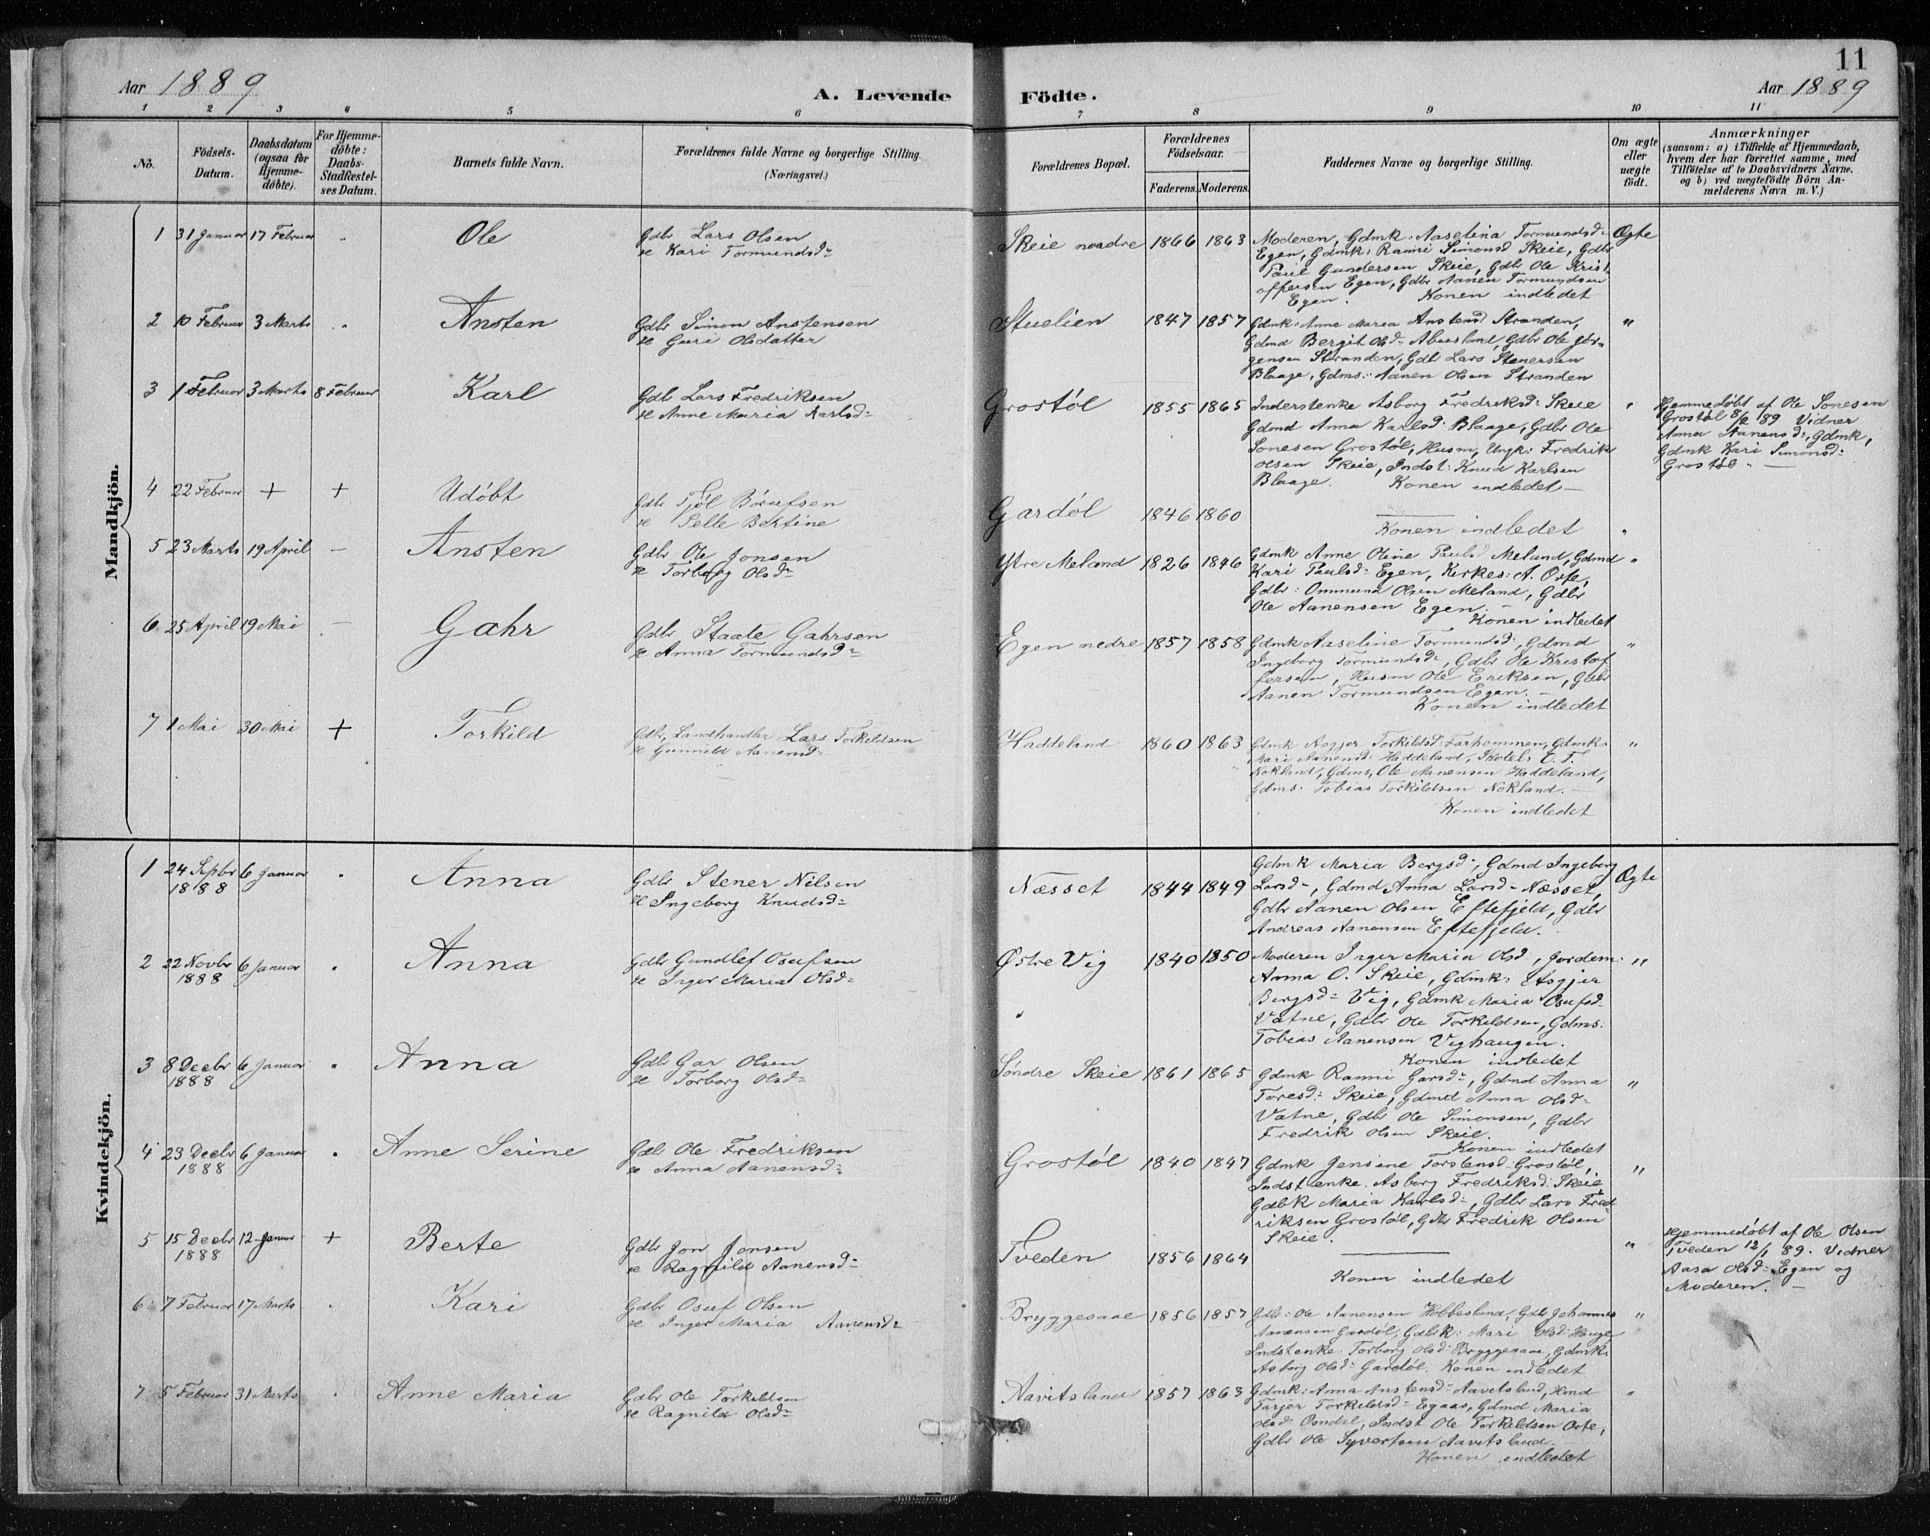 11
Aar 1889
A. Levende Födte.
Aar 1889
1 2 3 4 5 6 7 8 9 10 11
No.
Födsels-
Datum.
Daabsdatum
(ogsaa for
Hjemme-
døbte).
For Hjemme-
døbte:
Daabs-
Stadfæstel-
ses Datum.
Barnets fulde Navn.
Forældrenes fulde Navne og borgerlige Stilling.
(Næringsvei.)
Forældrenes Bopæl.
Forældrenes
Födselsaar.
Faderens. Moderens.
Faddernes Navne og borgerlige Stilling.
Om ægte
eller
uægte
født.
Anmærkninger
(saasom: a) i Tilfælde af Hjemmedaab,
hvem der har forrettet samme, med
Tilföielse af to Daabsvidners Navne,
og b) ved uægtefödte Börn An-
melderens Navn m. V.)
Mandkjön.
1 31 Januar 17 Februar " Ole
Gdbr Lars Olsen
& Kari Tormundsd:
Skeie nordre 1866 1863
Moderen, Gdmk: Aaselina Tormundsd:
Egen, Gdmk: Ranni Simonsd Skeie, Gdbr
Paul Gundersen Skeie, Gdbr Ole Krist
offersen Egen, Gdbr Aanen Tormundsen
Egen. Konen indledet
Ægte
2 10 Februar 3 Marts " Ansten
Gdbr Simon Anstensen
& Guri Olsdatter
Stuelien 1847 1857
Gdmk: Anne Maria Anstensd Stranden,
Gdmd Bergit Olsd: Abusland, Gdbr Ole Jör-
gensen Stranden, Gdbr Lars Stenersen
Blaage, Gdms: Aanen Olsen Stranden
"
3 1 Februar 3 Marts 8 Februar Karl
Gdbr Lars Fredriksen
& Anne Maria Karlsd:
Grostøl 1855 1865
Inderstenke Asborg Fredriksd: Skeie
Gdmd Anna Karlsd: Blaage, Gdbr Ole
Sonesen Grostøl, Husm, Ungk: Fredrik
Olsen Skeie, Indst: Knud Karlsen
Blaage. Konen indledet —
"
Hjemmedøbt af Ole Sonesen
Grostøl 8/2 89 Vidner
Anna Aanensd:, Gdmk,
Gdmk Kari Simonsd:
Grostøl " —
4 22 Februar + + Udøbt
Gdbr Tjøl Börufsen
& Pelle Bertine
Gardøl 1846 1860
Konen indledet
"
5 23 Marts 19 April — Ansten
Gdbr Ole Jonsen
& Torborg Olsd:
Ytre Meland 1826 1846
Gdmk Anne Oline Paulsd Meland, Gdmd
Kari Paulsd: Egen, Kirkes: A. Oste,
Gdbr: Ommund Olsen Meland, Gdbr
Ole Aanensen Egen. —
Konen indledet
"
6 25 April 19 Mai — Gahr
Gdbr Staale Gahrsen
& Anna Tormundsd:
Egen nedre 1857 1858
Gdmk Aaseline Tormundsd:, Gdmd
Ingeborg Tormundsd:, Gdbr Ole Kristof
fersen, Husm Ole Eriksen, Gdbr
Aanen Tormundsen Egen. —
Konen indledet
"
7 1 Mai 30 Mai + Torkild
Gdbr, Landhandler Lars Torkildsen
& Gunnild Aanensd:
Haddeland 1860 1863
Gdmk Aagjer Torkildsd:, Gdmk:
Mari Aanensd: Haddeland, Skolels E. T.
Nökland, Gdms, Ole Aanensen Haddeland,
Gdms: Tobias Torkildsen Nökland. —
Konen indledet
"
Kvindekjön.
1 24 Septbr 1888 6 Januar " Anna
Gdbr Stener Nilsen
& Ingeborg Knudsd:
Næsset 1844 1849
Gdmk Maria Bergsd:, Gdmd Ingeborg
Larsd:, Gdmd Anna Larsd: Næsset,
Gdbr Aanen Olsen Eftefjeld, Gdbr
Andreas Aanensen Eftefjeld.
Ægte
2 22 Novbr 1888 6 Januar " Anna
Gdbr Gundlef Osufsen
& Inger Maria Olsd:
Østre Vig 1840 1850
Moderen Inger Maria Olsd, Jordem:
Anna O. Skeie, Gdmk: Asgjer
Bergsd: Vig, Gdmk Maria Osufsd:
Vatne, Gdbr Ole Torkildsen, Gdms:
Tobias Aanensen Vighaugen.
Konen indledet
"
3 8 Decbr 1888 6 Januar " Anna
Gdbr Gar Olsen
& Torborg Olsd:
Søndre Skeie 1861 1865
Gdmk Ranni Garsd:, Gdmd Anna
Toresd: Skeie, Gdmd Anna Olsd:
Vatne, Gdbr Ole Simonsen, Gdbr
Fredrik Olsen Skeie.
Konen indledet
"
4 23 Decbr 1888 6 Januar " Anne Serine
Gdbr Ole Fredriksen
& Anna Aanensd:
Grostøl 1840 1847
Gdmk Jensine Torstensd: Grostøl,
Indstenke. Asborg Fredriksd: Skeie
Gdbk Maria Karlsd:, Gdbr Lars Fred
riksen Grostøl, Gdbr Fredrik Olsen
Skeie.
"
5 15 Decbr 1888 12 Januar + Berte
Gdbr Jon Jonsen
& Ragnild Aanensd:
Tveden 1856 1864
Konen indledet
"
Hjemmedøbt af Ole Olsen
Tveden 12/1 89. Vidner
Aasa Olsd: Egen og
Moderen. —
6 7 Februar 17 Marts " Kari
Gdbr Osuf Olsen
& Inger Maria Aanensd:
Bryggesaae 1856 1857
Gdbr: Ole Aanensen Hobbesland, Gdbr Johannes
Aanensen Gardøl, Gdbk: Mari Olsd: Hauge
Indstenke: Torborg Olsd: Bryggesaae, Gdmk:
Asborg Olsd: Gardøl. Konen indledet
"
7 5 Februar 31 Marts " Anne Maria
Gdbr Ole Torkildsen
& Ragnild Olsd:
Aavitsland 1857 1863
Gdmk: Anna Anstensd: Aavitsland, Hmd
Tarjer Torkildsd: Egaas, Gdmd Maria
Olsd: Omdal, Indst Ole Torkildsen Oste,
Gdbr Ole Syvertsen Aavitsland.
Konen indledet
"